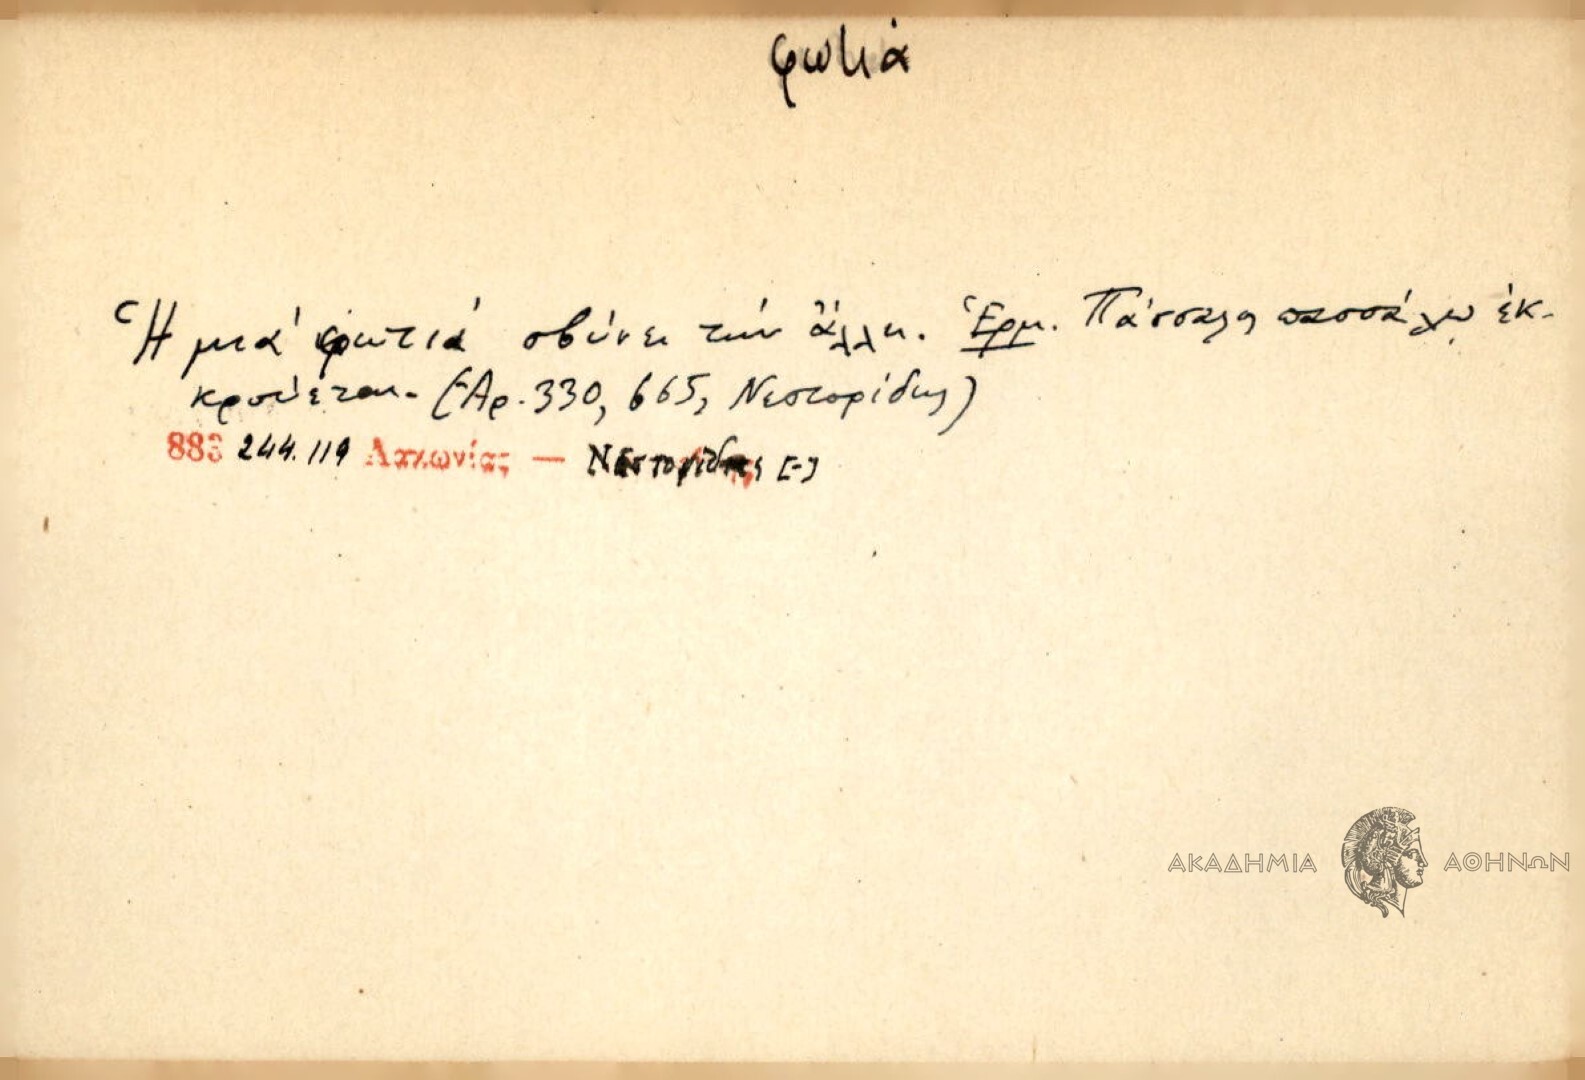 φωτιά
Ἡ μιά φωτιά σβύνει τήν ἄλλη. Ἑρμ. Πάσσαλος πασσάλῳ ἐκ-
κρούεται. (Ἀρ. 330, 665, Νεστορίδης)
883 244.119 Λακωνίας — Νεστορίδης [-]
ΑΚΑΔΗΜΙΑ ΑΘΗΝΩΝ